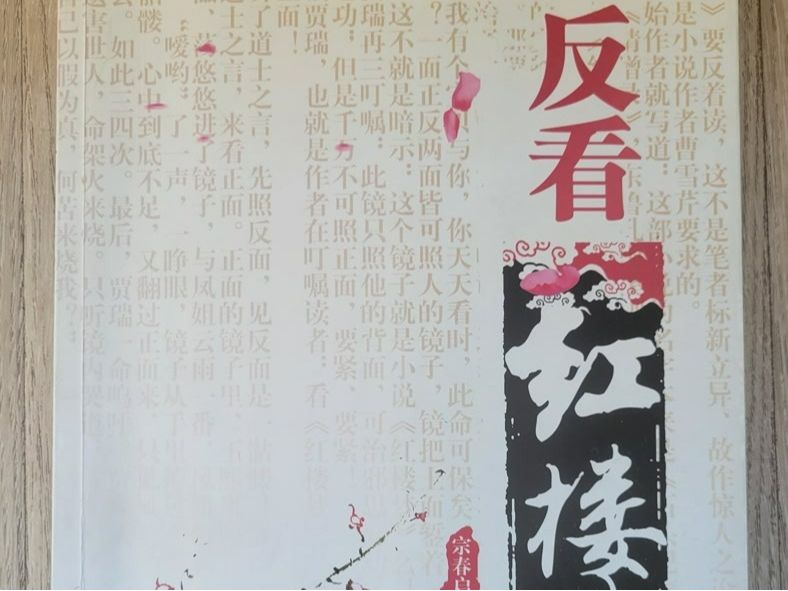 反看
红楼
》要反着读，这不是笔者标新立异、故作惊人之
是小说作者曹雪芹要求的。
始作者就写道：这部
我有个与你，你天天看时，此命可保矣
？一面正反两面皆可照人的镜子，镜把上面錾着
这不就是暗示：这个镜子就是小说《红楼
瑞再三叮嘱：此镜只照他的背面，可治邪
功；但是千万不可照正面，要紧，要紧！
贾瑞，也就是作者在叮嘱读者：看《红楼
面！
了道士之言，先照反面，见反面是一骷髅
士之言，来看正面。正面的镜子里，
荡悠悠进了镜子，与凤姐云雨一番，
“嗳哟”了一声，一睁眼，镜子从手
骷髅。心中到底不足，又翻过正面来，
去。如此三四次。最后，贾瑞一命呜呼
这害世人，命架火来烧。只听镜内哭道
自己以假为真，何苦来烧我？
宗春启